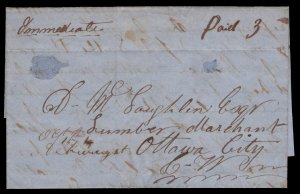 Immediate
Paid 3
D. McLaughlin Esqr
Lumber Merchant
Ottawa City
C. W.